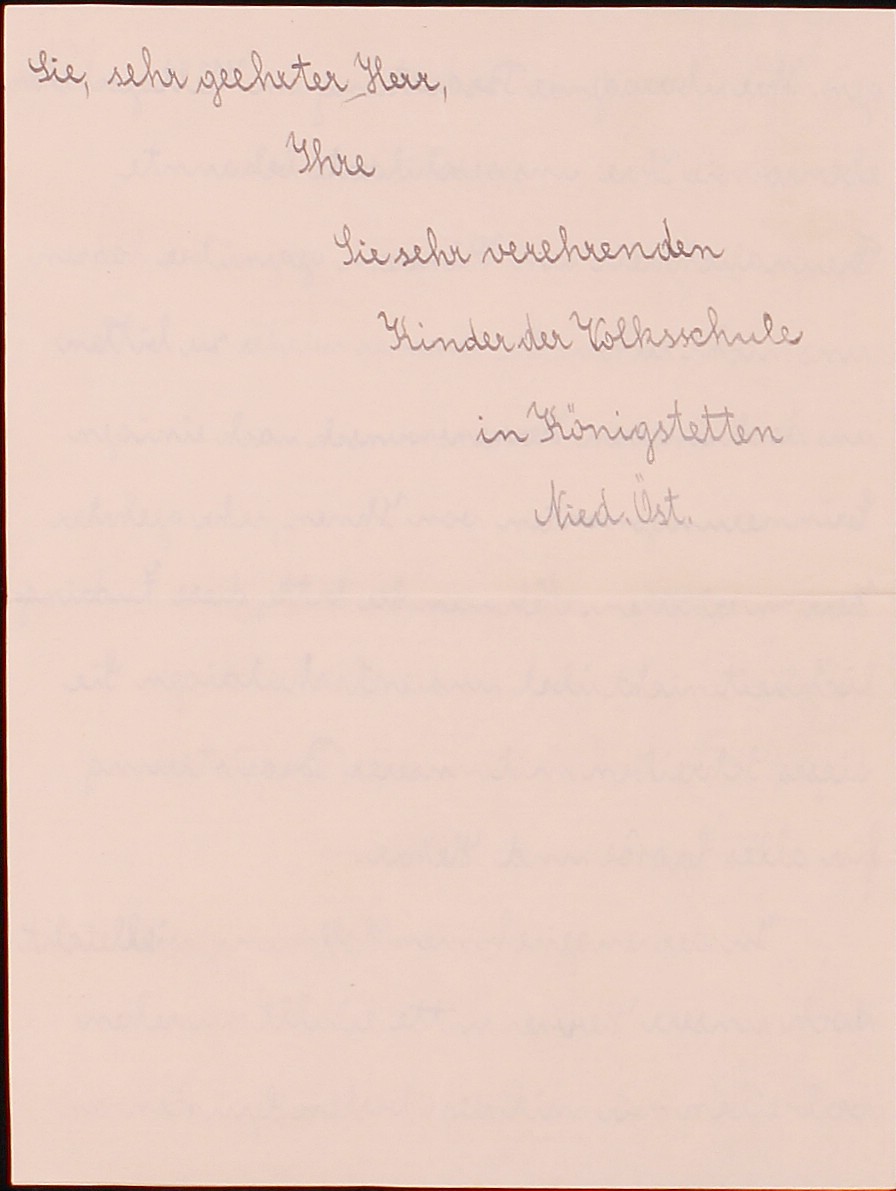 Sie, sehr geehrter Herr,
Ihre
Sie sehr verehrenden
Kinder der Volksschule
in Königstetten
Nied. Öst.